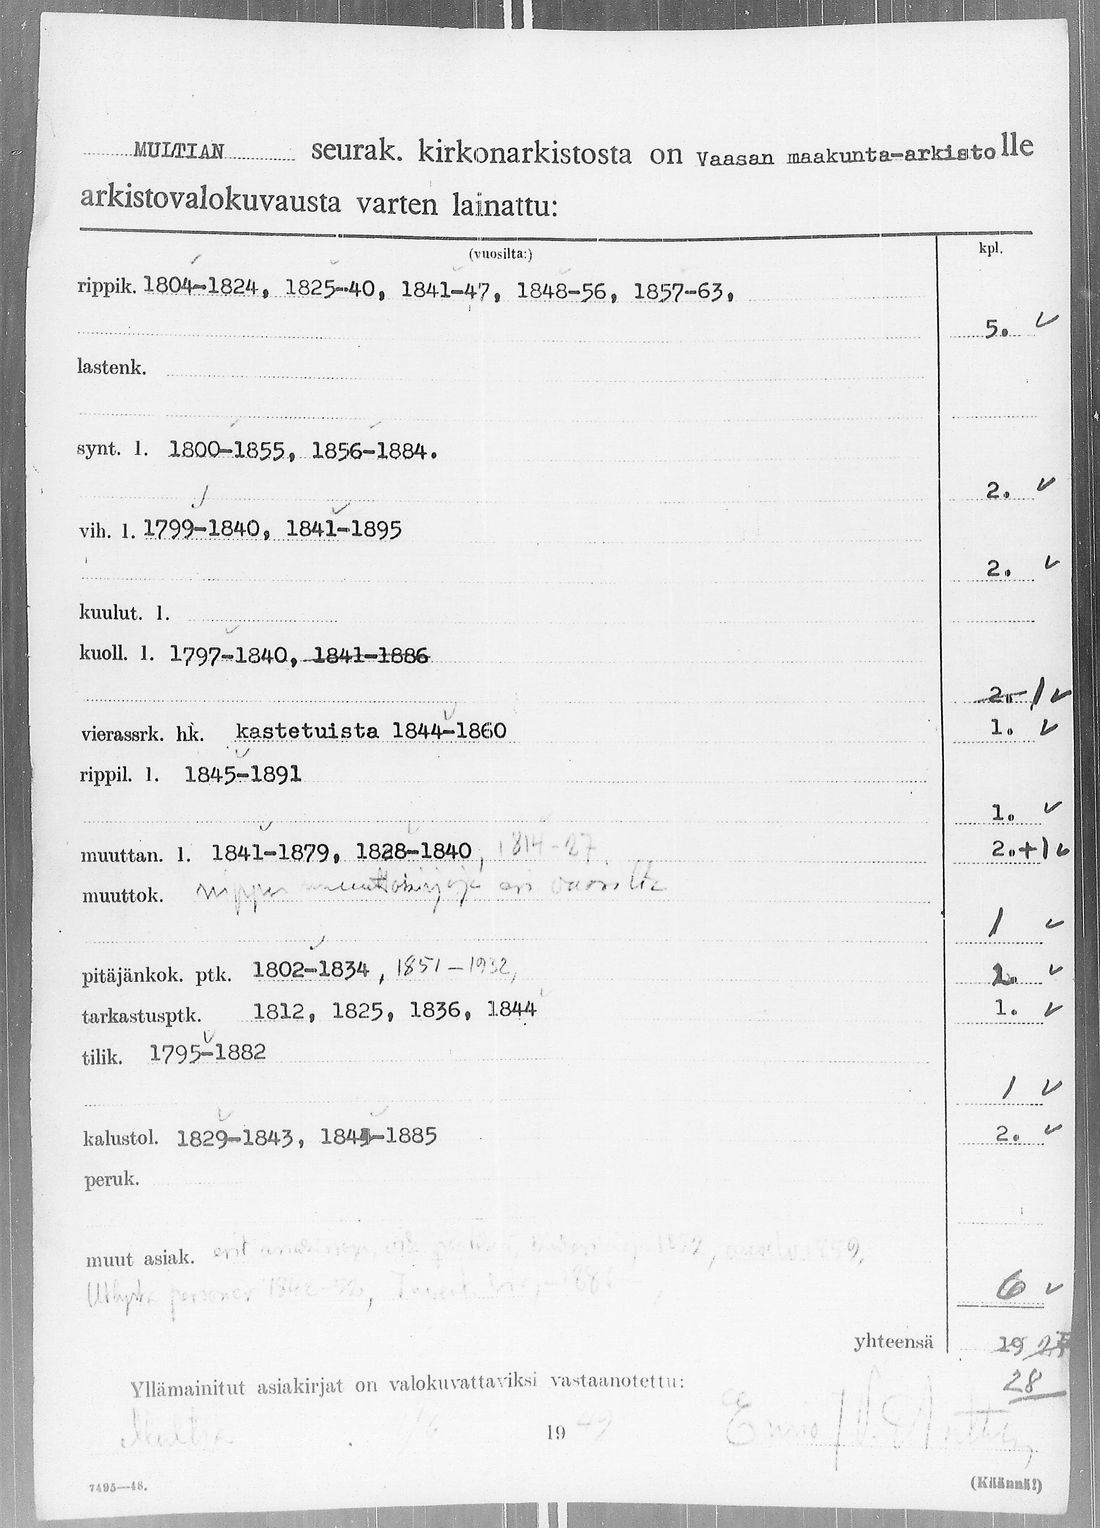 MULTIAN seurak. kirkonarkistosta on Vaasan maakunta-arkisto lle
arkistovalokuvausta varten lainattu:
(vuosilta:) kpl.
rippik. 1804-1824, 1825-40, 1841-47, 1848-56, 1857-63,
5. ✓
lastenk.
synt. l. 1800-1855, 1856-1884.
2. ✓
vih. l. 1799-1840, 1841-1895
2. ✓
kuulut. l.
kuoll. l. 1797-1840, 1841-1886
2. 1 ✓
vierassrk. hk. kastetuista 1844-1860 1. ✓
rippil. l. 1845-1891
1. ✓
muuttan. l. 1841-1879, 1828-1840, 1814-27. 2.+1 ✓
muuttok. nippu muuttokirjoja eri vuosilta
1 ✓
pitäjänkok. ptk. 1802-1834, 1851-1932, 2. ✓
tarkastusptk. 1812, 1825, 1836, 1844 1. ✓
tilik. 1795-1882
1 ✓
kalustol. 1829-1843, 1844-1885 2. ✓
peruk.
muut asiak.
personer 1848-52,
6 ✓
yhteensä 19
Yllämainitut asiakirjat on valokuvattaviksi vastaanotettu: 28
Multia 19 49
7495—48. (Käännä!)